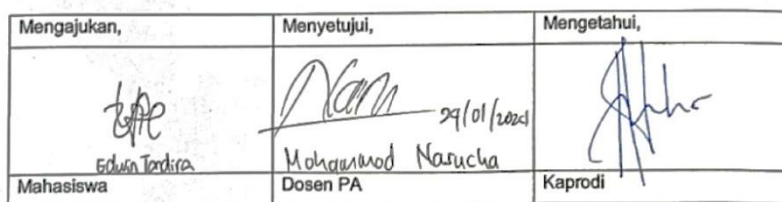 Mengajukan,
Menyetujui,
Mengetahui,
29/01/2021
Edwin Tandira
Mohammad Narucha
Mahasiswa
Dosen PA
Kaprodi